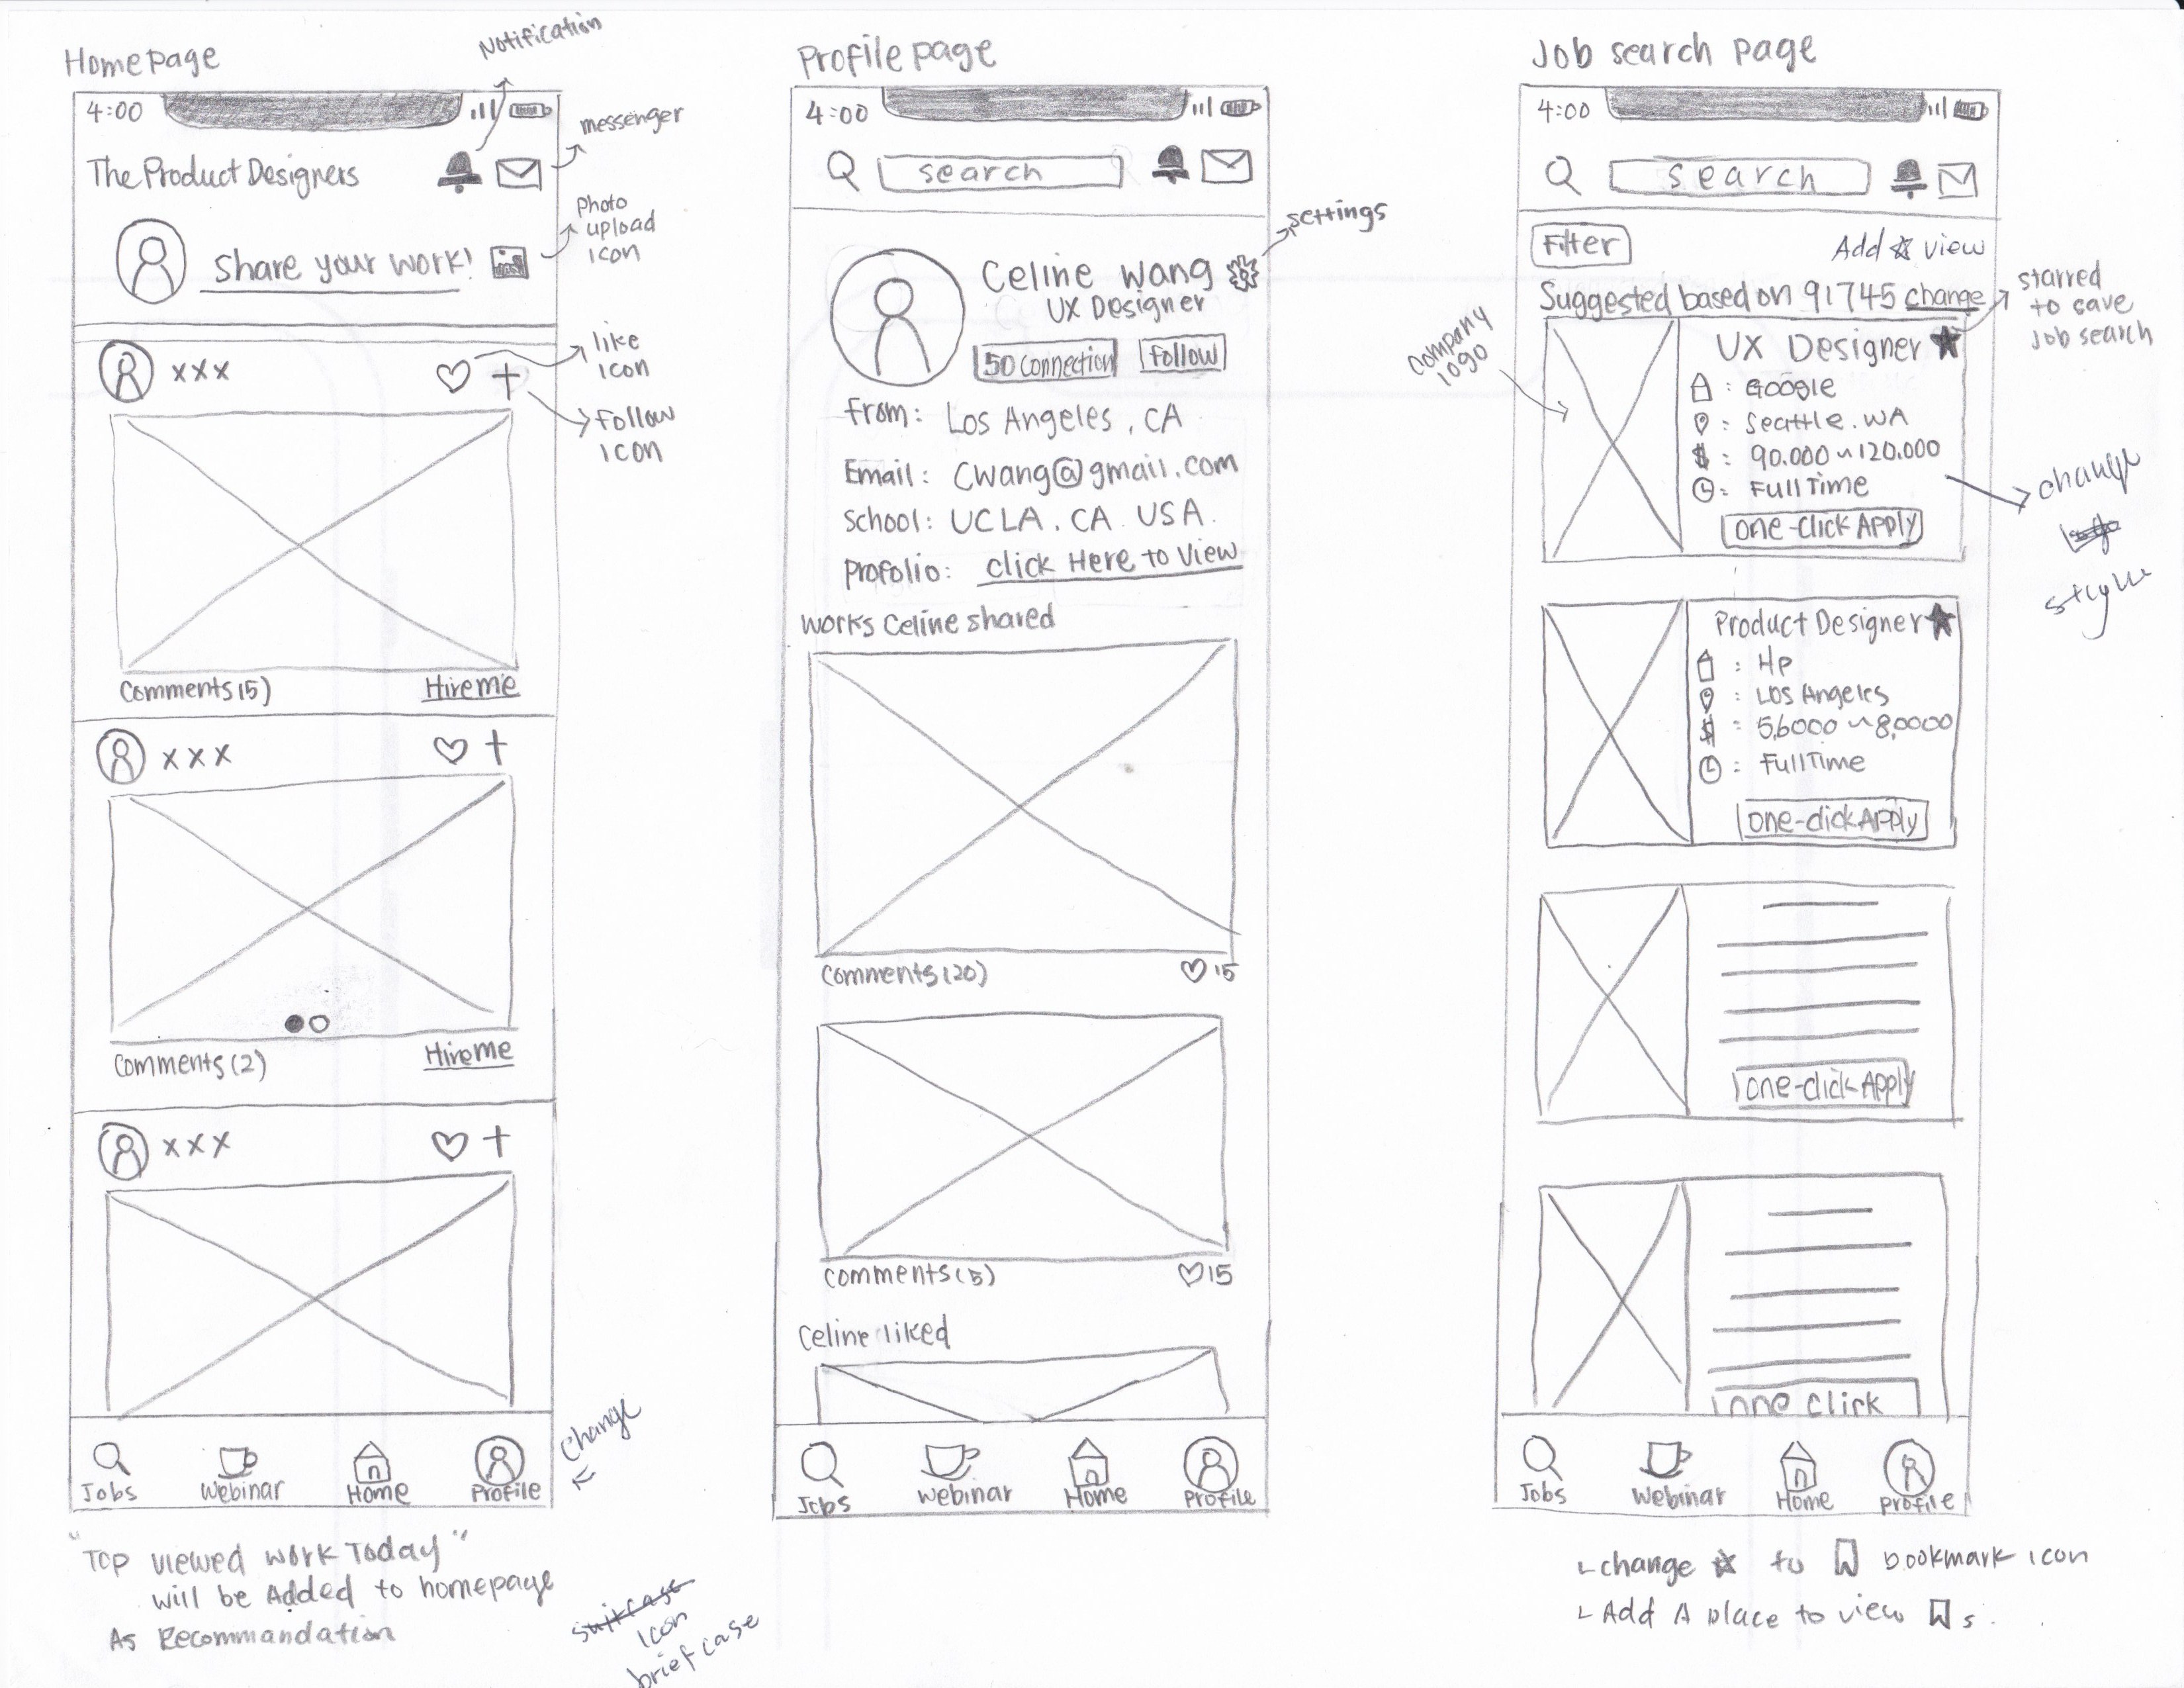 Homepage
Notification
4:00
messenger
The Product Designers
Photo
upload
icon
Share your work!
like
icon
xxx
Follow
ICON
Comments 15)
Hire me
xxx
Comments (2)
Hire me
xxx
Jobs
Webinar
Home
Profile
change
"Top viewed work Today"
will be Added to homepage
As Recommandation
suitcase
icon
briefcase
Profile page
4:00
search
settings
Celine Wang
UX Designer
50 connection
Follow
From: Los Angeles, CA
Email: Cwang@gmail.com
School: UCLA. CA. USA.
Profolio: click Here to View
works Celine shared
Comments (20)
15
Comments (5)
15
Celine liked
Jobs
Webinar
Home
Profile
Job search page
4:00
search
Filter
Add ☆ view
Suggested based on 91745 change
starred
to save
Job search
company
logo
UX Designer
: Google
: Seattle. WA
$ : 90.000 ~ 120.000
: Full Time
one-click Apply
change
style
Product Designer
: Hp
: Los Angeles
$ : 56000 ~ 80000
: Full Time
one-click Apply
one-click Apply
one click
Jobs
Webinar
Home
Profile
change ☆ to bookmark icon
Add A place to view s.